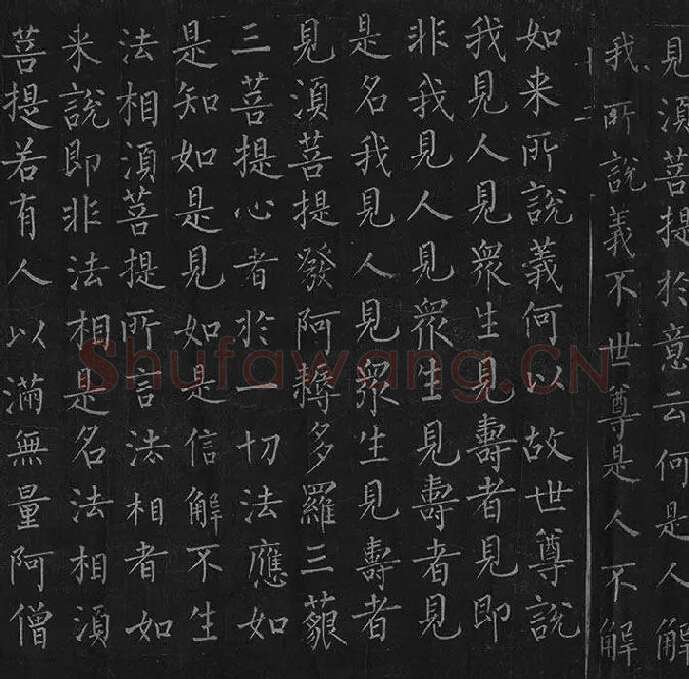 見湏菩提於意云何是人解
我所說義不世尊是人不解
十二
如来所說義何以故世尊說
我見人見衆生見壽者見即
非我見人見衆生見壽者見
是名我見人見衆生見壽者
見湏菩提發阿耨多羅三藐
三菩提心者於一切法應如
是知如是見如是信解不生
法相湏菩提所言法相者如
来說即非法相是名法相湏
菩提若有人以滿無量阿僧
Shufawang.CN